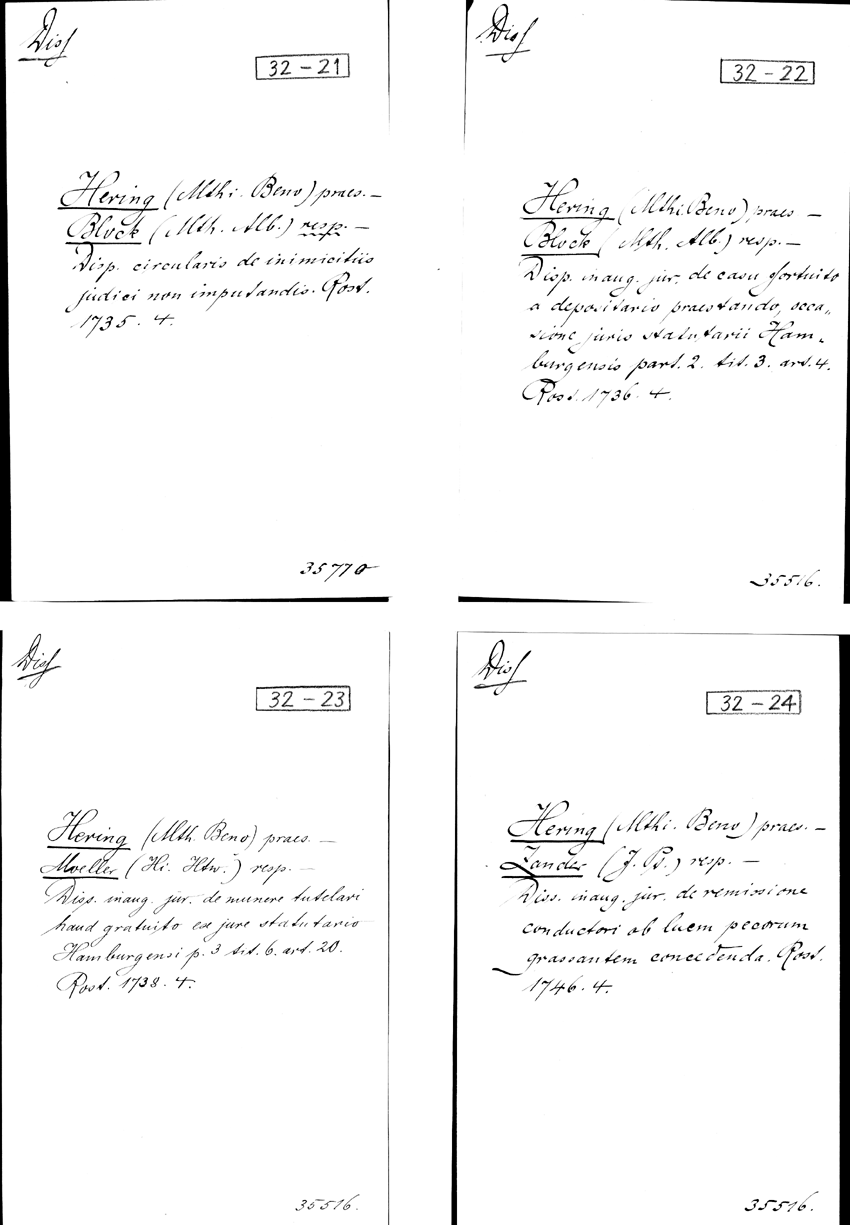 Diss
32-21
Hering (Mthi. Beno) praes. —
Block (Mth. Alb.) resp. —
Disp. circularis de inimicitiis
judici non imputandis. Rost.
1735. 4.
35770
Diss
32-22
Hering (Mthi. Beno) praes —
Block (Mth. Alb.) resp. —
Disp. inaug. jur. de casu fortuito
a depositario praestando, occa„
sione juris statutarii Ham„
burgensis part. 2. tit. 3. art. 4.
Rost. 1736. 4.
35516.
Diss
32-23
Hering (Mth. Beno) praes. —
Moeller (Hi. Htw.) resp. —
Diss. inaug. jur. de munere tutelari
haud gratuito ex jure statutario
Hamburgensi p. 3 tit. 6. art. 20.
Rost. 1738. 4.
35516.
Diss
32-24
Hering (Mthi. Beno) praes. —
Zander (J. Pt.) resp. —
Diss. inaug. jur. de remissione
conductori ob luem pecorum
grassantem concedenda. Rost.
1746. 4.
35516.